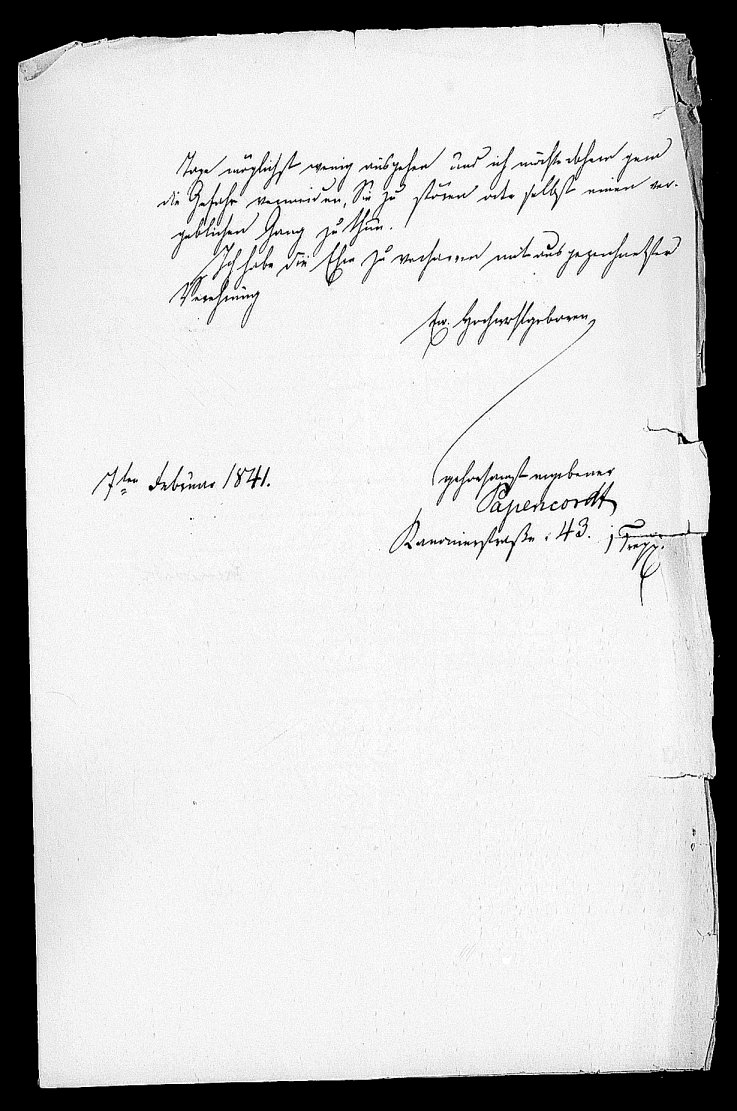 Tage möglichst wenig ausgehen und ich möchte daher gern
die Gefahr vermeiden, Sie zu stören oder selbst einen ver-
geblichen Gang zu thun.
Ich habe die Ehre zu verharren mit ausgezeichnetster
Verehrung
Ew. Hochwohlgeboren
7ten Februar 1841.
gehorsamst ergebener
Papencordt
Kanonierstraße 43. 1 Trepp.